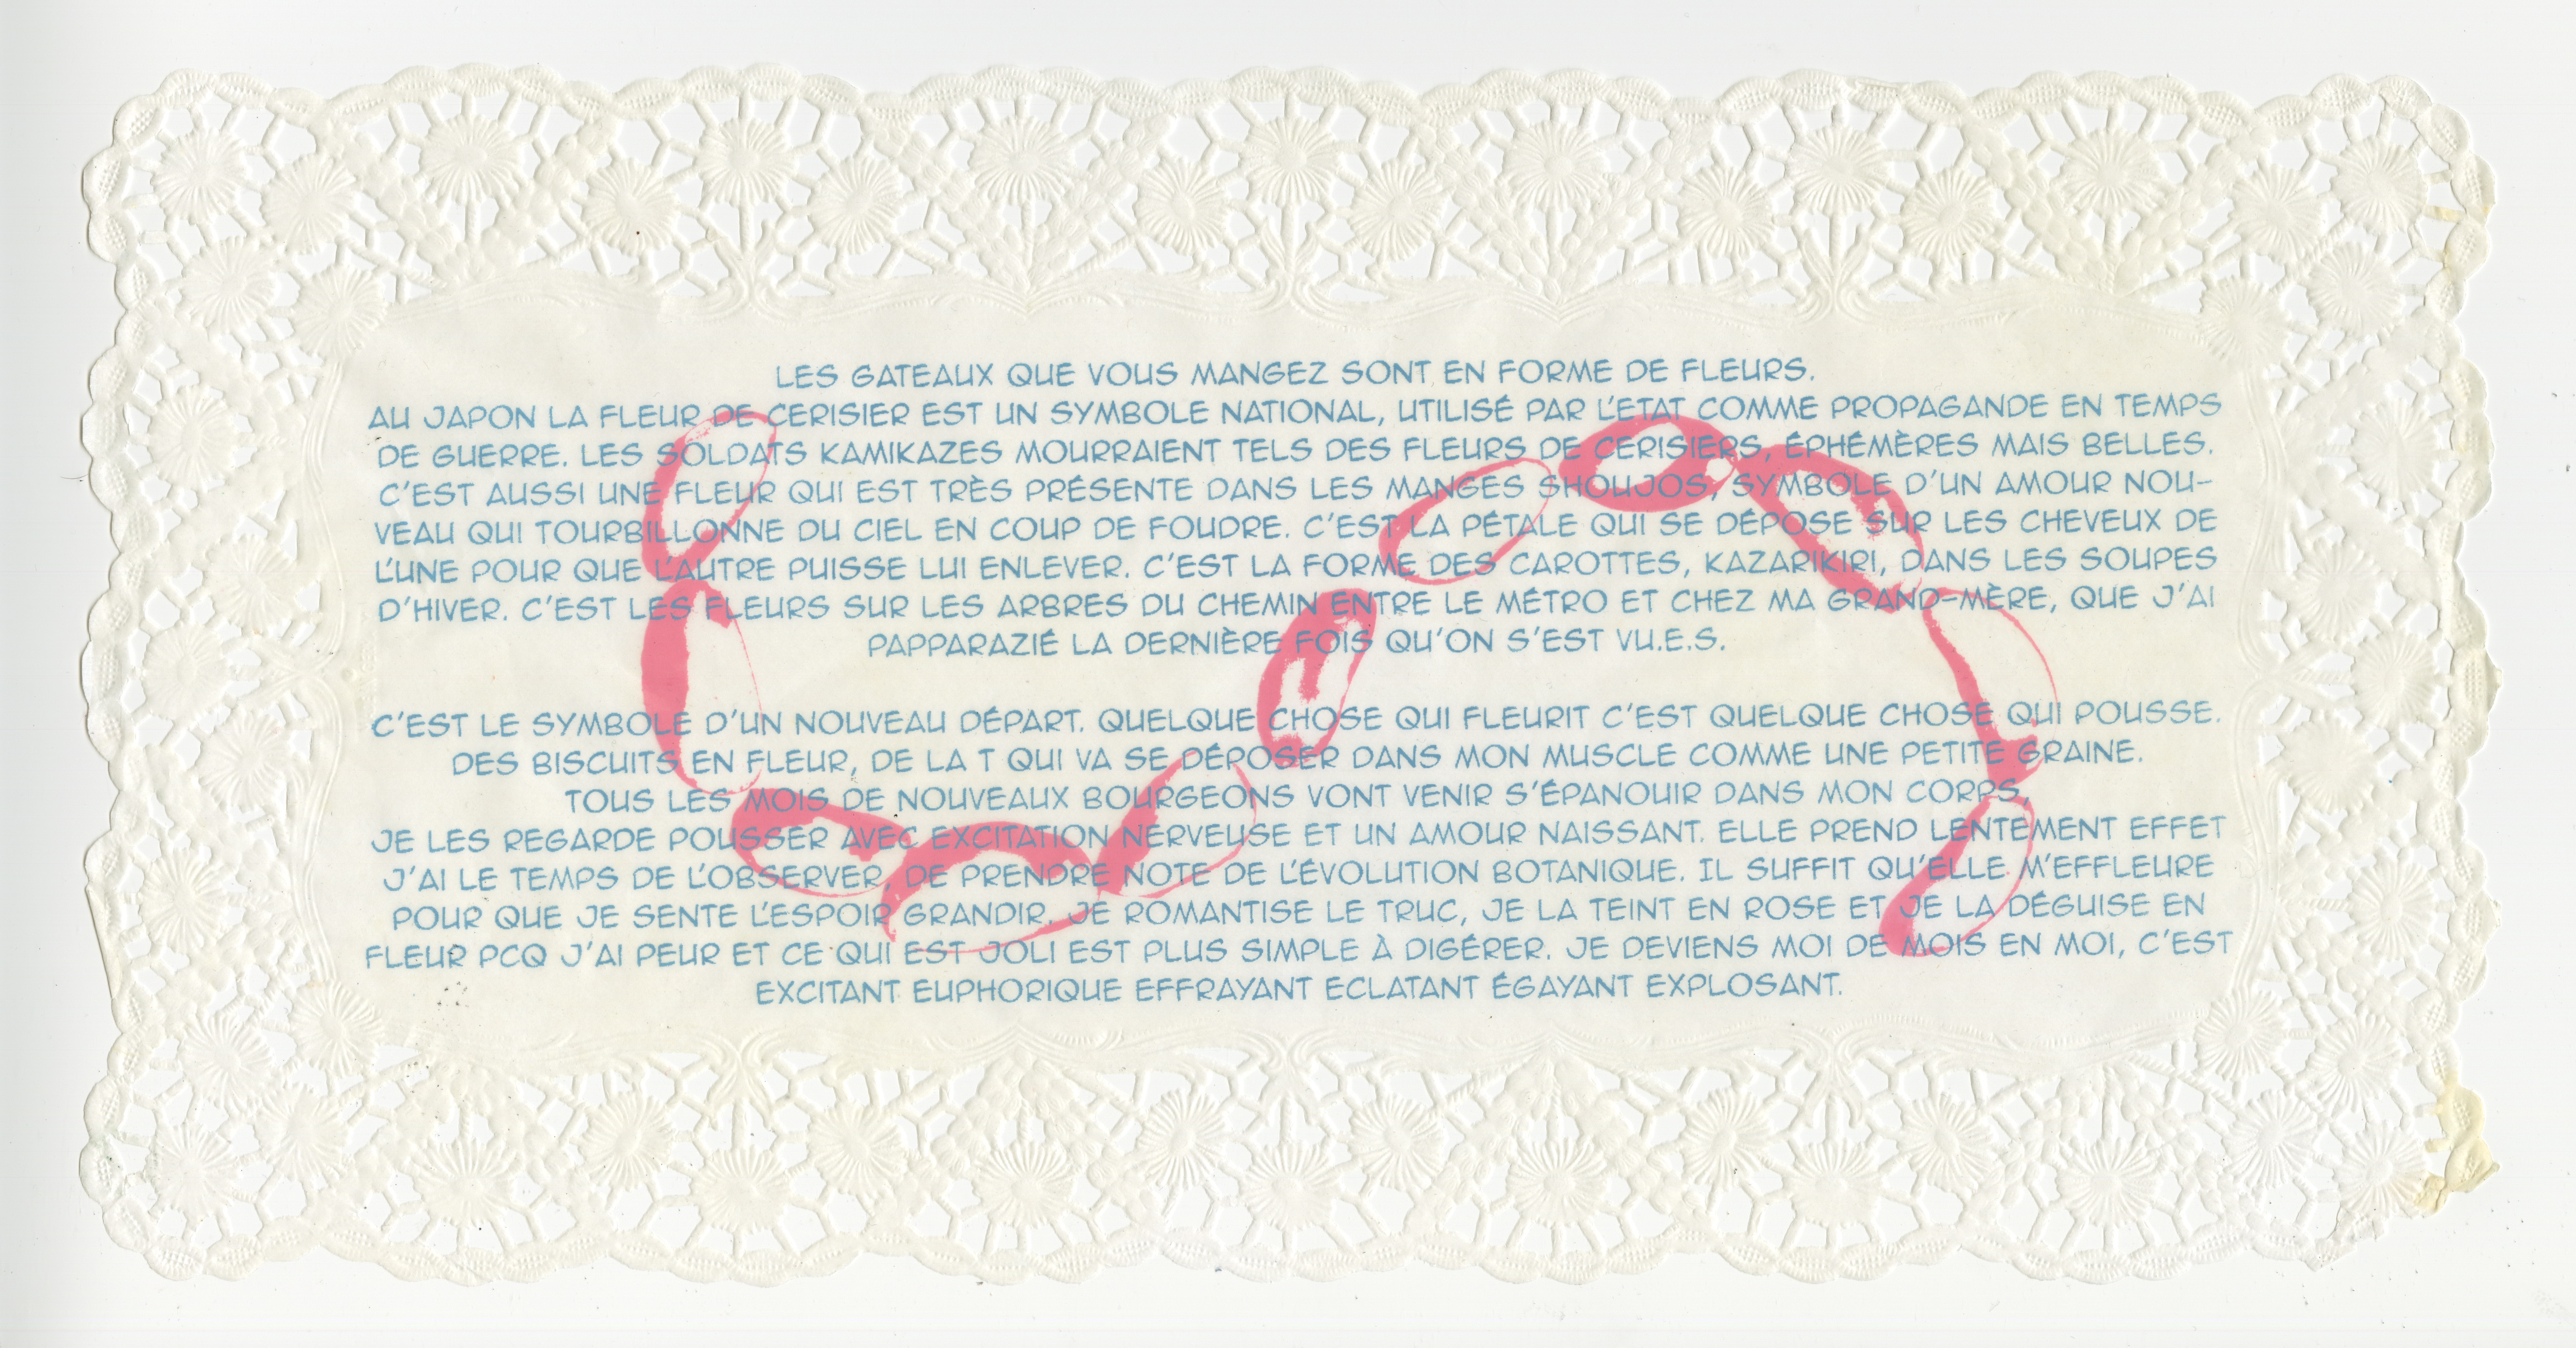 LES GATEAUX QUE VOUS MANGEZ SONT EN FORME DE FLEURS.
AU JAPON LA FLEUR DE CERISIER EST UN SYMBOLE NATIONAL, UTILISÉ PAR L'ETAT COMME PROPAGANDE EN TEMPS
DE GUERRE. LES SOLDATS KAMIKAZES MOURRAIENT TELS DES FLEURS DE CERISIERS, ÉPHÉMÈRES MAIS BELLES.
C'EST AUSSI UNE FLEUR QUI EST TRÈS PRÉSENTE DANS LES MANGES SHOUJOS, SYMBOLE D'UN AMOUR NOU-
VEAU QUI TOURBILLONNE DU CIEL EN COUP DE FOUDRE. C'EST LA PÉTALE QUI SE DÉPOSE SUR LES CHEVEUX DE
L'UNE POUR QUE L'AUTRE PUISSE LUI ENLEVER. C'EST LA FORME DES CAROTTES, KAZARIKIRI, DANS LES SOUPES
D'HIVER. C'EST LES FLEURS SUR LES ARBRES DU CHEMIN ENTRE LE MÉTRO ET CHEZ MA GRAND-MÈRE, QUE J'AI
PAPPARAZIÉ LA DERNIÈRE FOIS QU'ON S'EST VU.E.S.
C'EST LE SYMBOLE D'UN NOUVEAU DÉPART. QUELQUE CHOSE QUI FLEURIT C'EST QUELQUE CHOSE QUI POUSSE.
DES BISCUITS EN FLEUR, DE LA T QUI VA SE DÉPOSER DANS MON MUSCLE COMME UNE PETITE GRAINE.
TOUS LES MOIS DE NOUVEAUX BOURGEONS VONT VENIR S'ÉPANOUIR DANS MON CORPS,
JE LES REGARDE POUSSER AVEC EXCITATION NERVEUSE ET UN AMOUR NAISSANT. ELLE PREND LENTEMENT EFFET
J'AI LE TEMPS DE L'OBSERVER, DE PRENDRE NOTE DE L'ÉVOLUTION BOTANIQUE. IL SUFFIT QU'ELLE M'EFFLEURE
POUR QUE JE SENTE L'ESPOIR GRANDIR. JE ROMANTISE LE TRUC, JE LA TEINT EN ROSE ET JE LA DÉGUISE EN
FLEUR PCQ J'AI PEUR ET CE QUI EST JOLI EST PLUS SIMPLE À DIGÉRER. JE DEVIENS MOI DE MOIS EN MOI, C'EST
EXCITANT EUPHORIQUE EFFRAYANT ECLATANT ÉGAYANT EXPLOSANT.